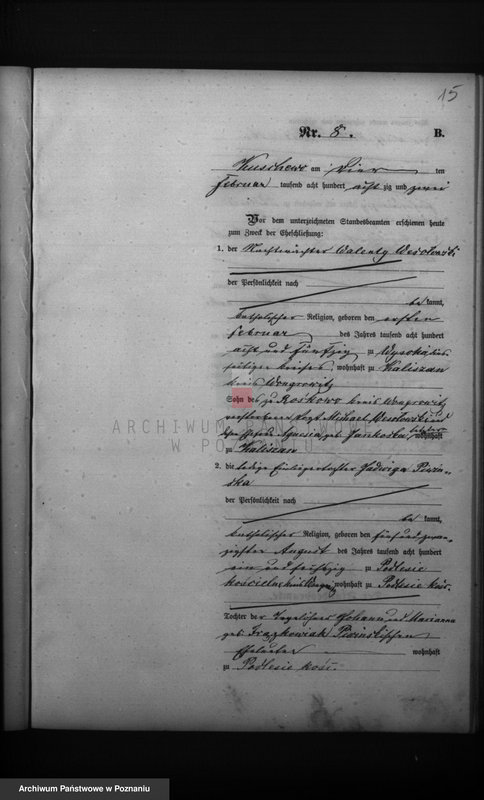 15
Nr. 8. B.
am vier ten
Februar tausend acht hundert acht zig und zwei
Vor dem unterzeichneten Standesbeamten erschienen heute
zum Zweck der Eheschließung:
1. der Nachtwächter Walenty Wesołowski
der Persönlichkeit nach
be kannt,
katholischer Religion, geboren den ersten
Februar des Jahres tausend acht hundert
acht und fünfzig zu Wysoka
Kreises, wohnhaft zu Kaliszan
Kreis Wongrowitz
Sohn des zu Roskowo Kreis Wongrowitz
verstorbenen Vogt Michael Wesołowski und
Agnesia geb. Jankoska, letztere wohnhaft
ARCHIWUM PAŃSTWOWE
W POZNANIU
zu Kaliszan
2. die ledige Einliegertochter Jadwiga Piwin-
ska
der Persönlichkeit nach
be kannt,
katholischer Religion, geboren den fünf und zwan-
zigsten August des Jahres tausend acht hundert
ein und sechszig zu Podlesie
kościelne wohnhaft zu Podlesie kość.
Tochter der Tagelöhner Johann und Marianna
geb. Frąckowiak Piwinskischen
Eheleute wohnhaft
zu Podlesie kość.
Archiwum Państwowe w Poznaniu